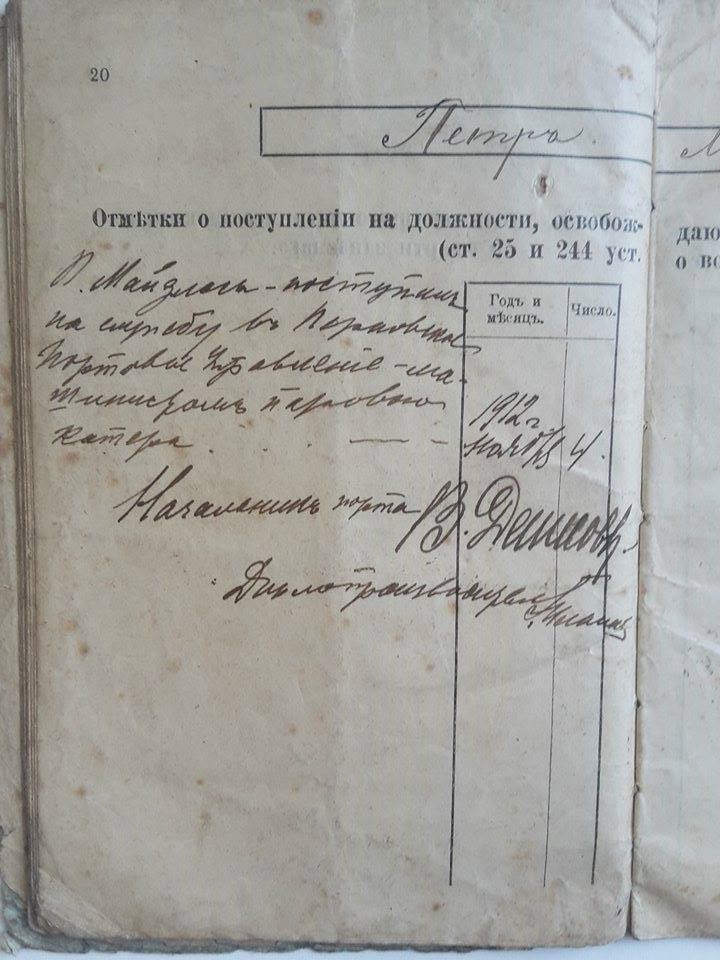 20
Петръ.
Отмѣтки о поступленіи на должности, освобож-
(ст. 25 и 244 уст.
даю
о во
Годъ и мѣсяцъ.
Число.
П. Майдласъ - поступилъ
на службу въ Перновское
Портовое Управленіе - ма-
шинистомъ парового
катера.
1912 г.
ноября 4.
Начальникъ порта В.
Дѣлопроизводитель